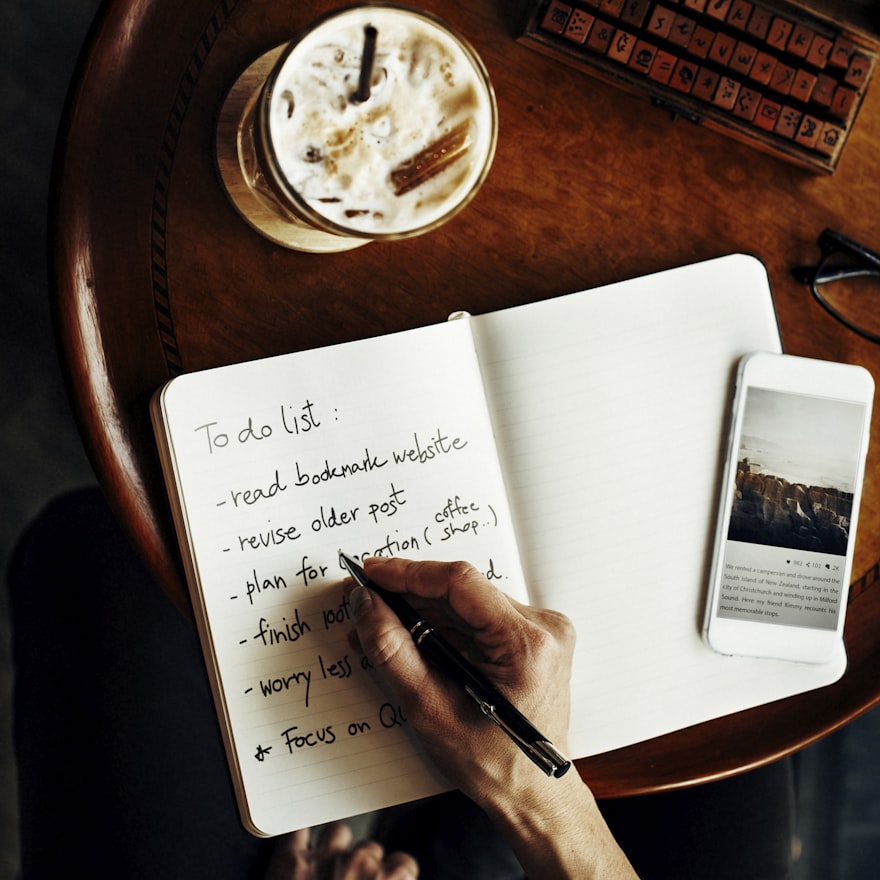 To do list :
- read bookmark website
- revise older post
- plan for location ( coffee shop..)
- finish
- worry less
* Focus on
982 103 2K
We rented a campervan and drove around the
South Island of New Zealand, starting in the
city of Christchurch and winding up in Milford
Sound. Here my friend Kimmy recounts his
most memorable stops.